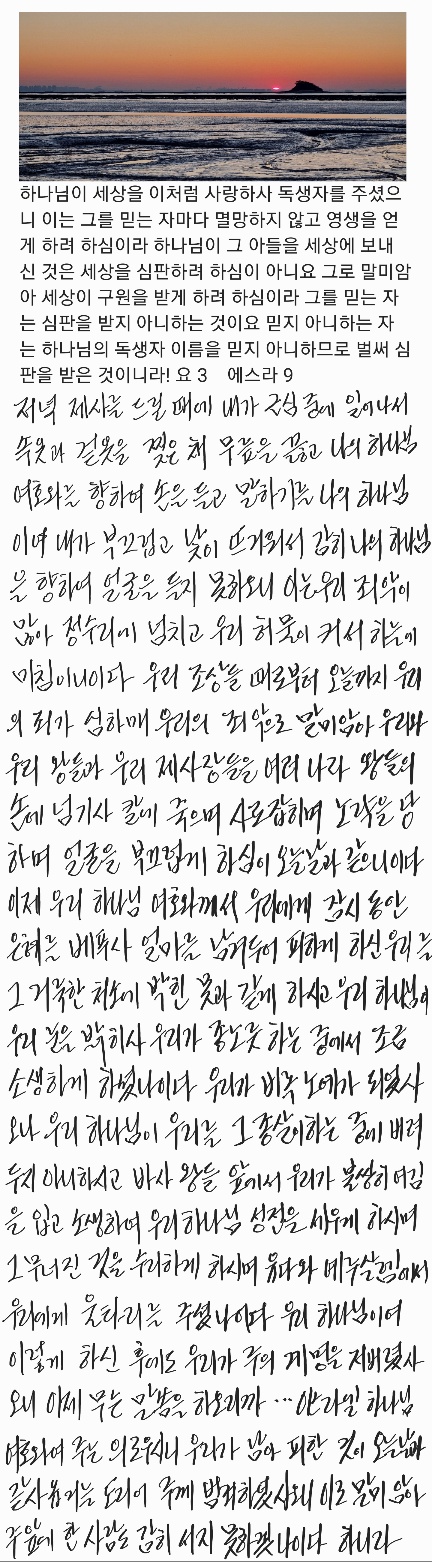 하나님이 세상을 이처럼 사랑하사 독생자를 주셨으
니 이는 그를 믿는 자마다 멸망하지 않고 영생을 얻
게 하려 하심이라 하나님이 그 아들을 세상에 보내
신 것은 세상을 심판하려 하심이 아니요 그로 말미암
아 세상이 구원을 받게 하려 하심이라 그를 믿는 자
는 심판을 받지 아니하는 것이요 믿지 아니하는 자
는 하나님의 독생자 이름을 믿지 아니하므로 벌써 심
판을 받은 것이니라! 요 3 에스라 9
저녁 제사를 드릴 때에 내가 근심 중에 일어나서
속옷과 겉옷을 찢은 채 무릎을 꿇고 나의 하나님
여호와를 향하여 손을 들고 말하기를 나의 하나님
이여 내가 부끄럽고 낯이 뜨거워서 감히 나의 하나님
을 향하여 얼굴을 들지 못하오니 이는 우리 죄악이
많아 정수리에 넘치고 우리 허물이 커서 하늘에
미침이니이다 우리 조상들 때로부터 오늘까지 우리
의 죄가 심하매 우리의 죄악으로 말미암아 우리와
우리 왕들과 우리 제사장들을 여러 나라 왕들의
손에 넘기사 칼에 죽으며 사로잡히며 노략을 당
하며 얼굴을 부끄럽게 하심이 오늘날과 같으니이다
이제 우리 하나님 여호와께서 우리에게 잠시 동안
은혜를 베푸사 얼마를 남겨두어 피하게 하신 우리를
그 거룩한 처소에 박힌 못과 같게 하시고 우리 하나님이
우리 눈을 밝히사 우리가 종노릇 하는 중에서 조금
소생하게 하셨나이다 우리가 비록 노예가 되었사
오나 우리 하나님이 우리를 그 종살이하는 중에 버려
두지 아니하시고 바사 왕들 앞에서 우리가 불쌍히 여김
을 입고 소생하여 우리 하나님 성전을 세우게 하시며
그 무너진 것을 수리하게 하시며 유다와 예루살렘에서
우리에게 울타리를 주셨나이다 우리 하나님이여
이렇게 하신 후에도 우리가 주의 계명을 저버렸사
오니 이제 무슨 말씀을 하오리까 … 이스라엘 하나님
여호와여 주는 의로우시니 우리가 남아 피한 것이 오늘날과
같사옵거늘 도리어 주께 범죄하였사오니 이로 말미암아
주 앞에 한 사람도 감히 서지 못하겠나이다 하니라